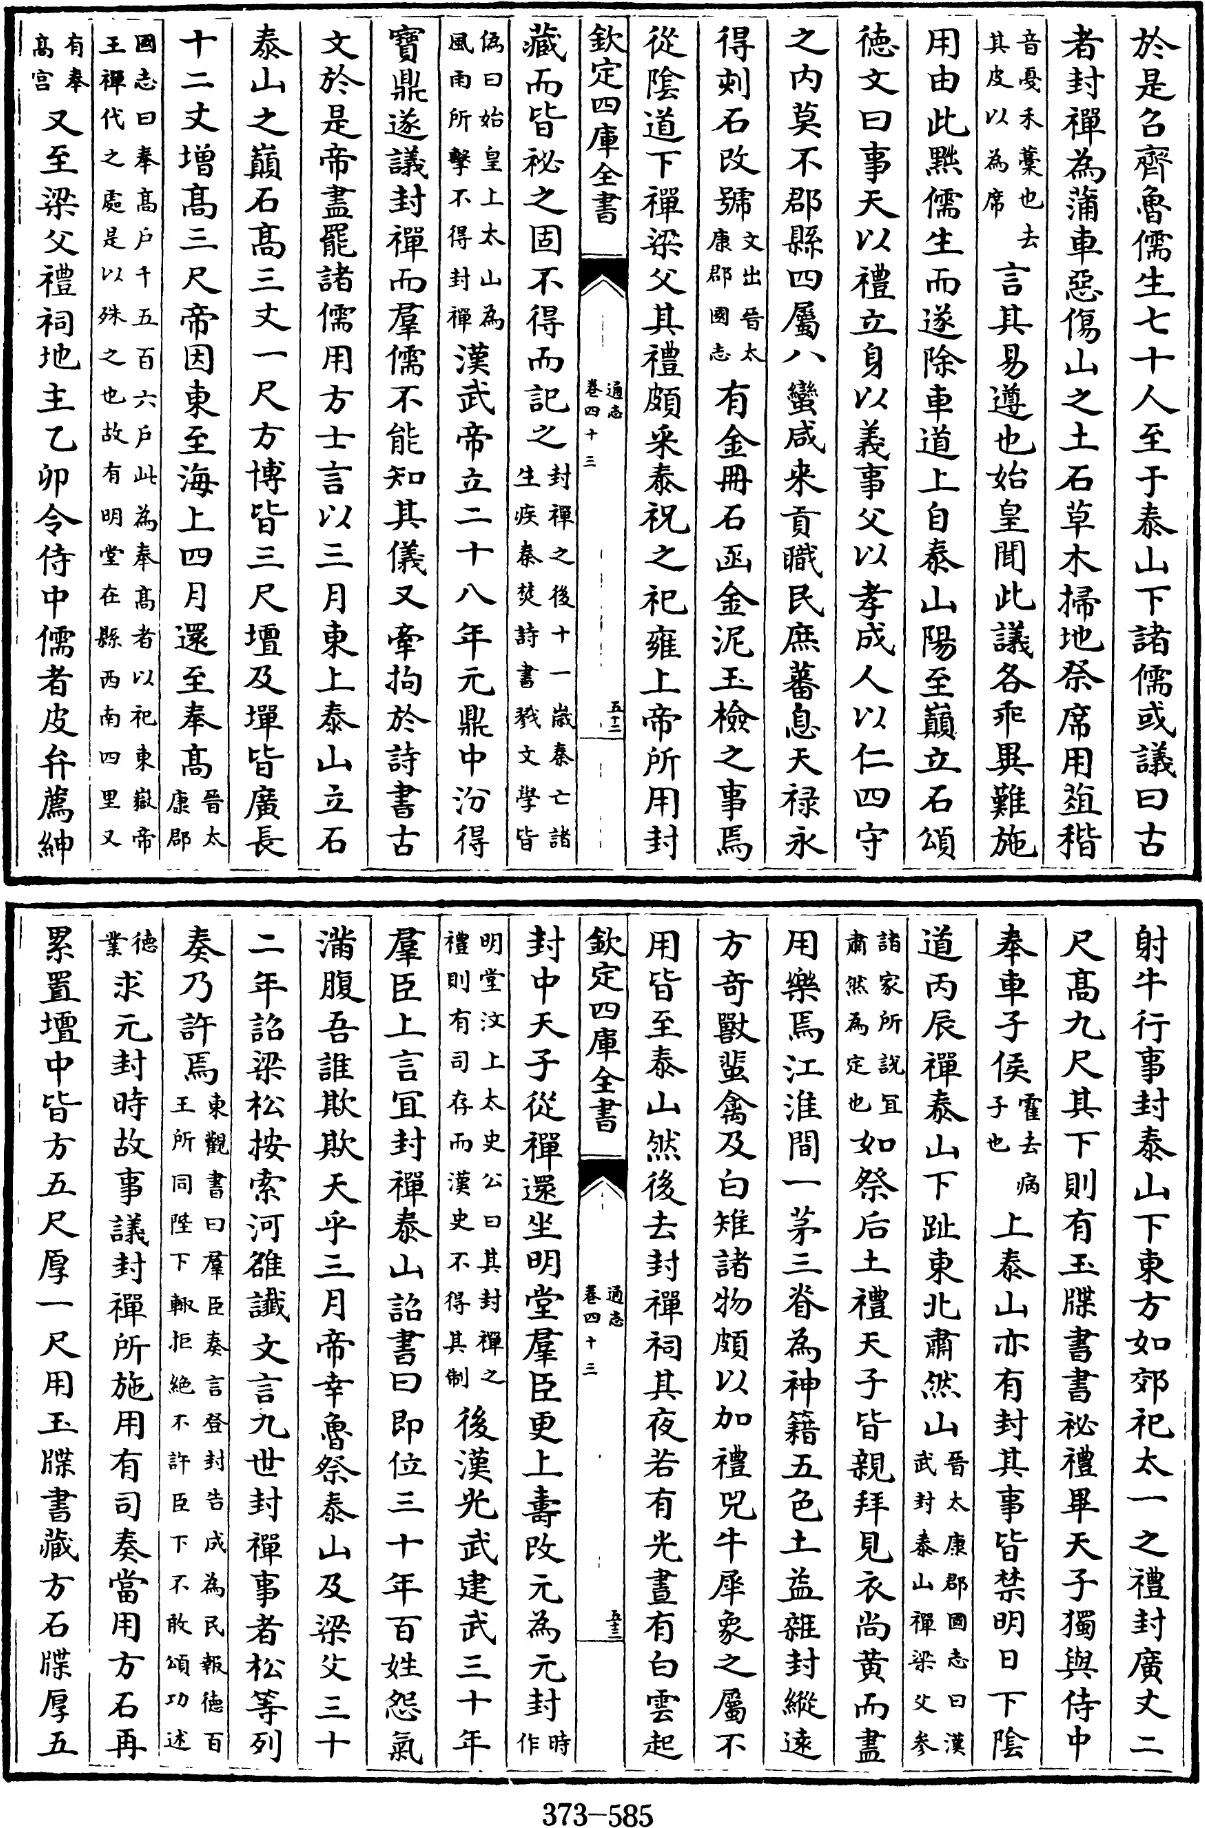 於是召齊魯儒生七十人至于泰山下諸儒或議曰古
者封禪為蒲車惡傷山之土石草木掃地祭席用葅稭
音憂禾藁也去其皮以為席言其易遵也始皇聞此議各乖異難施
用由此黜儒生而遂除車道上自泰山陽至巔立石頌
德文曰事天以禮立身以義事父以孝成人以仁四守
之内莫不郡縣四屬八蠻咸来貢職民庶蕃息天禄永
得刻石改號文出晉太康郡國志有金冊石函金泥玉檢之事焉
從陰道下禪梁父其禮頗采泰祝之祀雍上帝所用封
欽定四庫全書
通志
卷四十三
五十二
藏而皆祕之固不得而記之封禪之後十一歲秦亡諸生疾秦焚詩書戮文學皆
偽曰始皇上太山為風雨所擊不得封禪漢武帝立二十八年元鼎中汾得
寶鼎遂議封禪而羣儒不能知其儀又牽拘於詩書古
文於是帝盡罷諸儒用方士言以三月東上泰山立石
泰山之巔石髙三丈一尺方博皆三尺壇及墠皆廣長
十二丈增髙三尺帝因東至海上四月還至奉髙晉太康郡
國志曰奉髙戶千五百六戶此為奉髙者以祀東嶽帝王禪代之處是以殊之也故有明堂在縣西南四里又
有奉髙宫又至梁父禮祠地主乙卯令侍中儒者皮弁薦紳
射牛行事封泰山下東方如郊祀太一之禮封廣丈二
尺髙九尺其下則有玉牒書書祕禮畢天子獨與侍中
奉車子侯霍去病子也上泰山亦有封其事皆禁明日下陰
道丙辰禪泰山下趾東北肅然山晉太康郡國志曰漢武封泰山禪梁父参
諸家所說宜肅然為定也如祭后土禮天子皆親拜見衣尚黃而盡
用樂焉江淮間一茅三脊為神籍五色土益雜封縱遠
方奇獸蜚禽及白雉諸物頗以加禮兕牛犀象之屬不
用皆至泰山然後去封禪祠其夜若有光晝有白雲起
欽定四庫全書
通志
卷四十三
五十三
封中天子從禪還坐明堂羣臣更上壽改元為元封時作
明堂汶上太史公曰其封禪之禮則有司存而漢史不得其制後漢光武建武三十年
羣臣上言宜封禪泰山詔書曰即位三十年百姓怨氣
滿腹吾誰欺欺天乎三月帝幸魯祭泰山及梁父三十
二年詔梁松按索河雒讖文言九世封禪事者松等列
奏乃許焉東觀書曰羣臣奏言登封告成為民報德百王所同陛下輙拒絶不許臣下不敢頌功述
德業求元封時故事議封禪所施用有司奏當用方石再
累置壇中皆方五尺厚一尺用玉牒書藏方石牒厚五
373-585